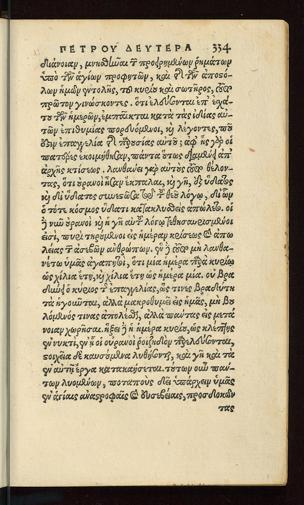 ΠΕΤΡΟΥ ΔΕΥΤΕΡΑ 334
διάνοιαν, μνησθῆναι τῶν προειρημένων ῥημάτων
ὑπὸ τῶν ἁγίων προφητῶν, καὶ τῆς τῶν ἀποστό-
λων ἡμῶν ἐντολῆς, τοῦ κυρίου καὶ σωτῆρος, τοῦτο
πρῶτον γινώσκοντες. ὅτι ἐλεύσονται ἐπ' ἐσχά-
του τῶν ἡμερῶν, ἐμπαῖκται κατὰ τὰς ἰδίας αὐ-
τῶν ἐπιθυμίας πορευόμενοι, καὶ λέγοντες, ποῦ
ἐστιν ἡ ἐπαγγελία τῆς παρουσίας αὐτοῦ; ἀφ' ἧς γὰρ οἱ
πατέρες ἐκοιμήθησαν, πάντα οὕτως διαμένει ἀπ'
ἀρχῆς κτίσεως. λανθάνει γὰρ αὐτοὺς τοῦτο θέλον-
τας, ὅτι οὐρανοὶ ἦσαν ἔκπαλαι, καὶ γῆ, ἐξ ὕδατος
καὶ δι' ὕδατος συνεστῶσα τῷ τοῦ θεοῦ λόγῳ, δι' ὧν
ὁ τότε κόσμος ὕδατι κατακλυσθεὶς ἀπώλετο. οἱ
δὲ νῦν οὐρανοὶ καὶ ἡ γῆ αὐτοῦ λόγῳ τεθησαυρισμένοι
εἰσὶ, πυρὶ τηρούμενοι εἰς ἡμέραν κρίσεως καὶ ἀπω
λείας τῶν ἀσεβῶν ἀνθρώπων. ἓν δὲ τοῦτο μὴ λανθα-
νέτω ὑμᾶς ἀγαπητοὶ, ὅτι μία ἡμέρα παρὰ κυρίῳ
ὡς χίλια ἔτη, καὶ χίλια ἔτη ὡς ἡμέρα μία. οὐ βρα
δύνει ὁ κύριος τῆς ἐπαγγελίας, ὥς τινες βραδυτῆ
τα ἡγοῦνται, ἀλλὰ μακροθυμεῖ εἰς ἡμᾶς, μὴ βου
λόμενός τινας ἀπολέσθαι, ἀλλὰ πάντας εἰς μετά
νοιαν χωρῆσαι. ἥξει δὲ ἡ ἡμέρα κυρίου, ὡς κλέπτης
ἐν νυκτὶ, ἐν ᾗ οἱ οὐρανοὶ ῥοιζηδὸν παρελεύσονται,
στοιχεῖα δὲ καυσούμενα λυθήσονται, καὶ γῆ καὶ τὰ
ἐν αὐτῇ ἔργα κατακαήσεται. τούτων οὖν πάν-
των λυομένων, ποταποὺς δεῖ ὑπάρχειν ὑμᾶς
ἐν ἁγίαις ἀναστροφαῖς καὶ εὐσεβείαις, προσδοκῶν
τας